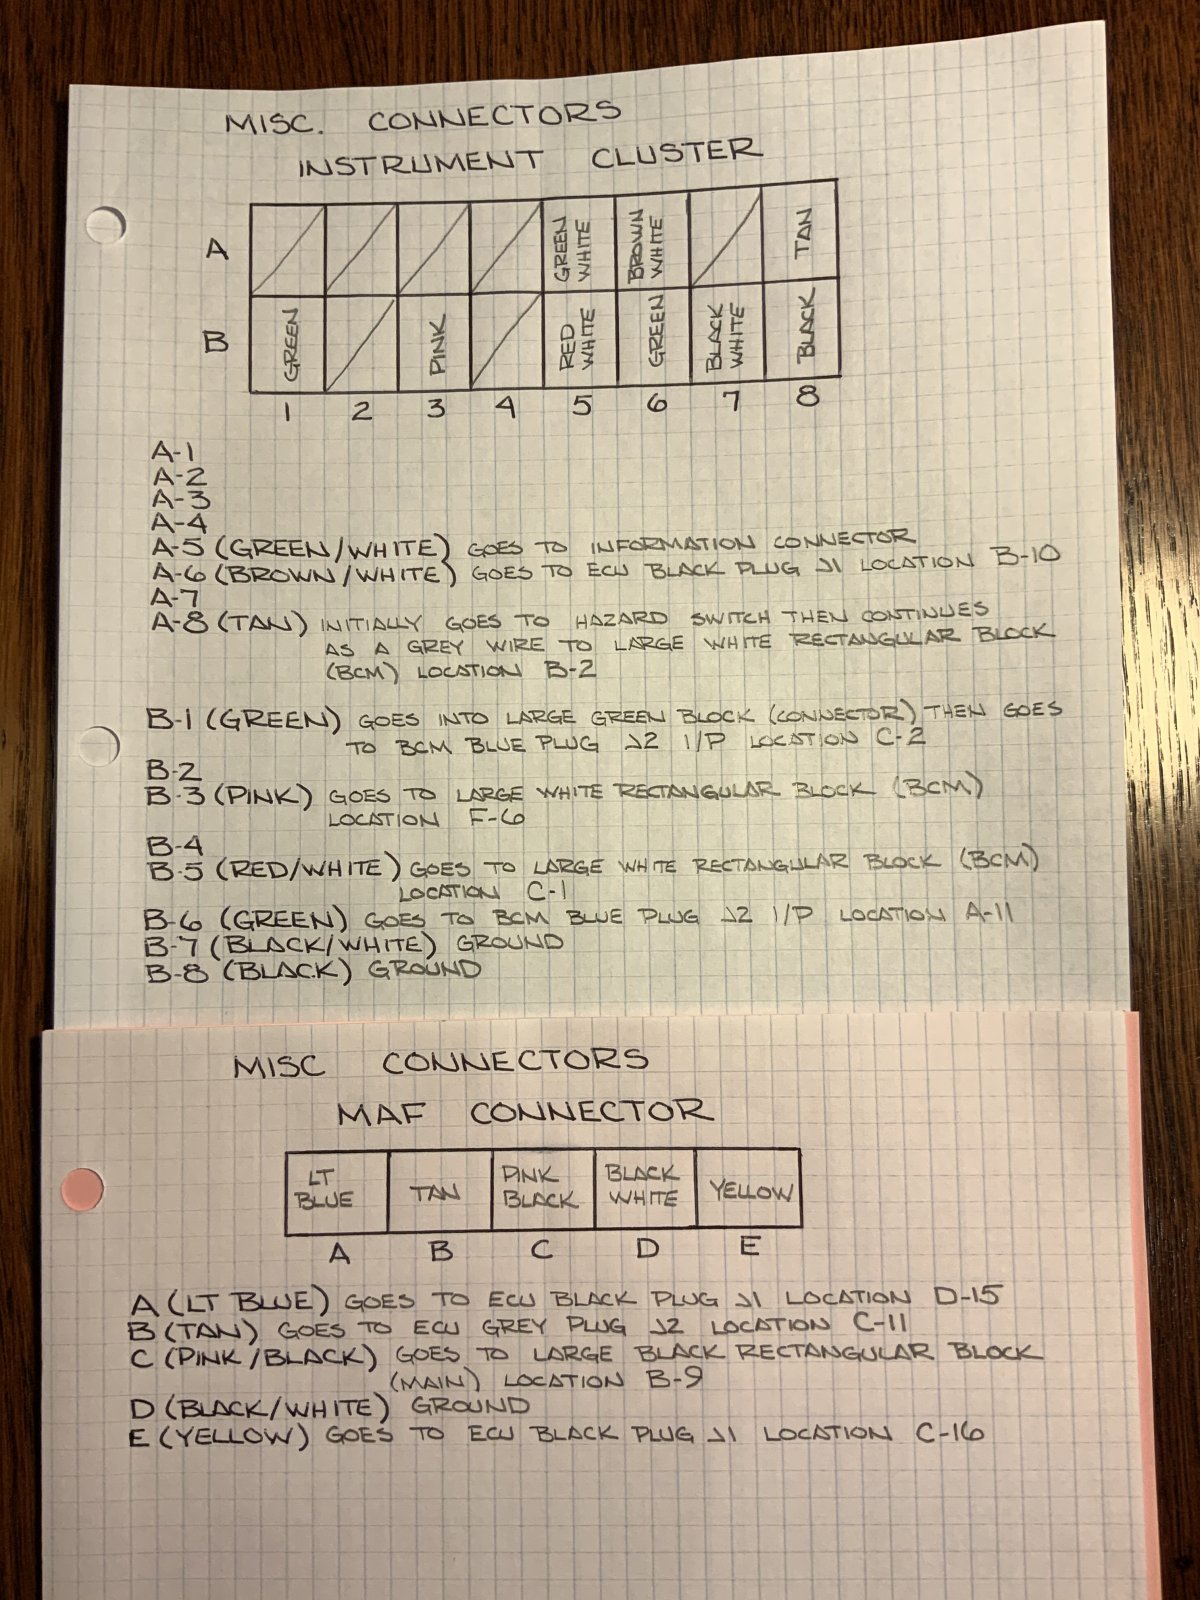 MISC. CONNECTORS
INSTRUMENT CLUSTER
A GREEN WHITE BROWN WHITE TAN
B GREEN PINK RED WHITE GREEN BLACK WHITE BLACK
1 2 3 4 5 6 7 8
A-1
A-2
A-3
A-4
A-5 (GREEN/WHITE) GOES TO INFORMATION CONNECTOR
A-6 (BROWN/WHITE) GOES TO ECU BLACK PLUG J1 LOCATION B-10
A-7
A-8 (TAN) INITIALLY GOES TO HAZARD SWITCH THEN CONTINUES
AS A GREY WIRE TO LARGE WHITE RECTANGULAR BLOCK
(BCM) LOCATION B-2
B-1 (GREEN) GOES INTO LARGE GREEN BLOCK (CONNECTOR) THEN GOES
TO BCM BLUE PLUG J2 I/P LOCATION C-2
B-2
B-3 (PINK) GOES TO LARGE WHITE RECTANGULAR BLOCK (BCM)
LOCATION F-6
B-4
B-5 (RED/WHITE) GOES TO LARGE WHITE RECTANGULAR BLOCK (BCM)
LOCATION C-1
B-6 (GREEN) GOES TO BCM BLUE PLUG J2 I/P LOCATION A-11
B-7 (BLACK/WHITE) GROUND
B-8 (BLACK) GROUND
MISC CONNECTORS
MAF CONNECTOR
LT BLUE TAN PINK BLACK BLACK WHITE YELLOW
A B C D E
A (LT BLUE) GOES TO ECU BLACK PLUG J1 LOCATION D-15
B (TAN) GOES TO ECU GREY PLUG J2 LOCATION C-11
C (PINK/BLACK) GOES TO LARGE BLACK RECTANGULAR BLOCK
(MAIN) LOCATION B-9
D (BLACK/WHITE) GROUND
E (YELLOW) GOES TO ECU BLACK PLUG J1 LOCATION C-16